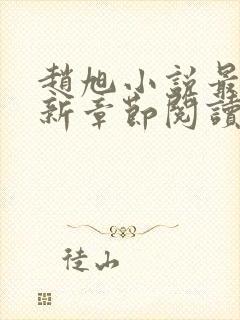 趙旭小說最
新章節閱讀
徒山